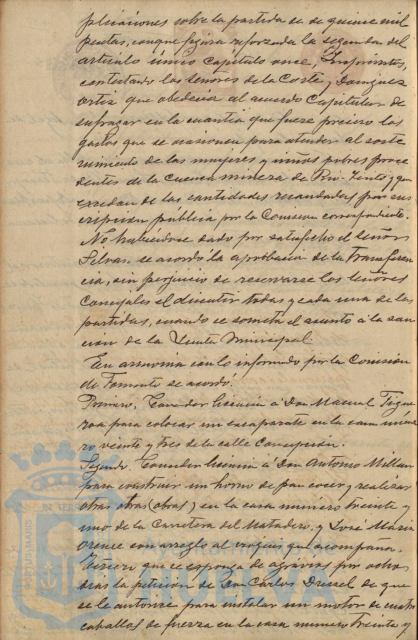 plicaciones sobre la partida se de quince mil
pesetas, conque figura reforzada la segunda del
artículo único capítulo once, Imprevistos,
contestando los señores de la Corte y Domínguez
Ortiz que obedecía al acuerdo Capitular de
sufragar en la cuantía que fuese preciso los
gastos que se ocasionen para atender al soste
nimiento de las mujeres y niños pobres proce
dentes de la Cuenca minera de Rio-Tinto, y que
excedan de las cantidades recaudadas por sus
cripción pública por la Comision correspondiente.
No habiéndose dado por satisfecho el señor
Silvas. se acordó la aprobación de la transferen
cia, sin perjuicio de reservarse los señores
Concejales el discutir todas y cada una de las
partidas, cuando se someta el asunto a la san
ción de la Junta Municipal.
En armonia con lo informado por la Comisión
de Fomento se acordó:
Primero, Conceder licencia á Don Manuel
para colocar un escaparate en la casa núme
ro veinte y tres de la calle Concepción.
Segundo Conceder licencia á Don Antonio Millan
para construir un horno de pan cocer y realizar
otras otras (obras) en la casa número treinta y
uno de la Carretera del Matadero, y José Maria
Orence con arreglo al croquis que acompaña.
Tercero que se exponga de agravios por ocho
dias la petición de Don Carlos Dressel de que
se le autorize para instalar un motor de cuatro
caballos de fuerza en la casa número treinta y
HUELVA